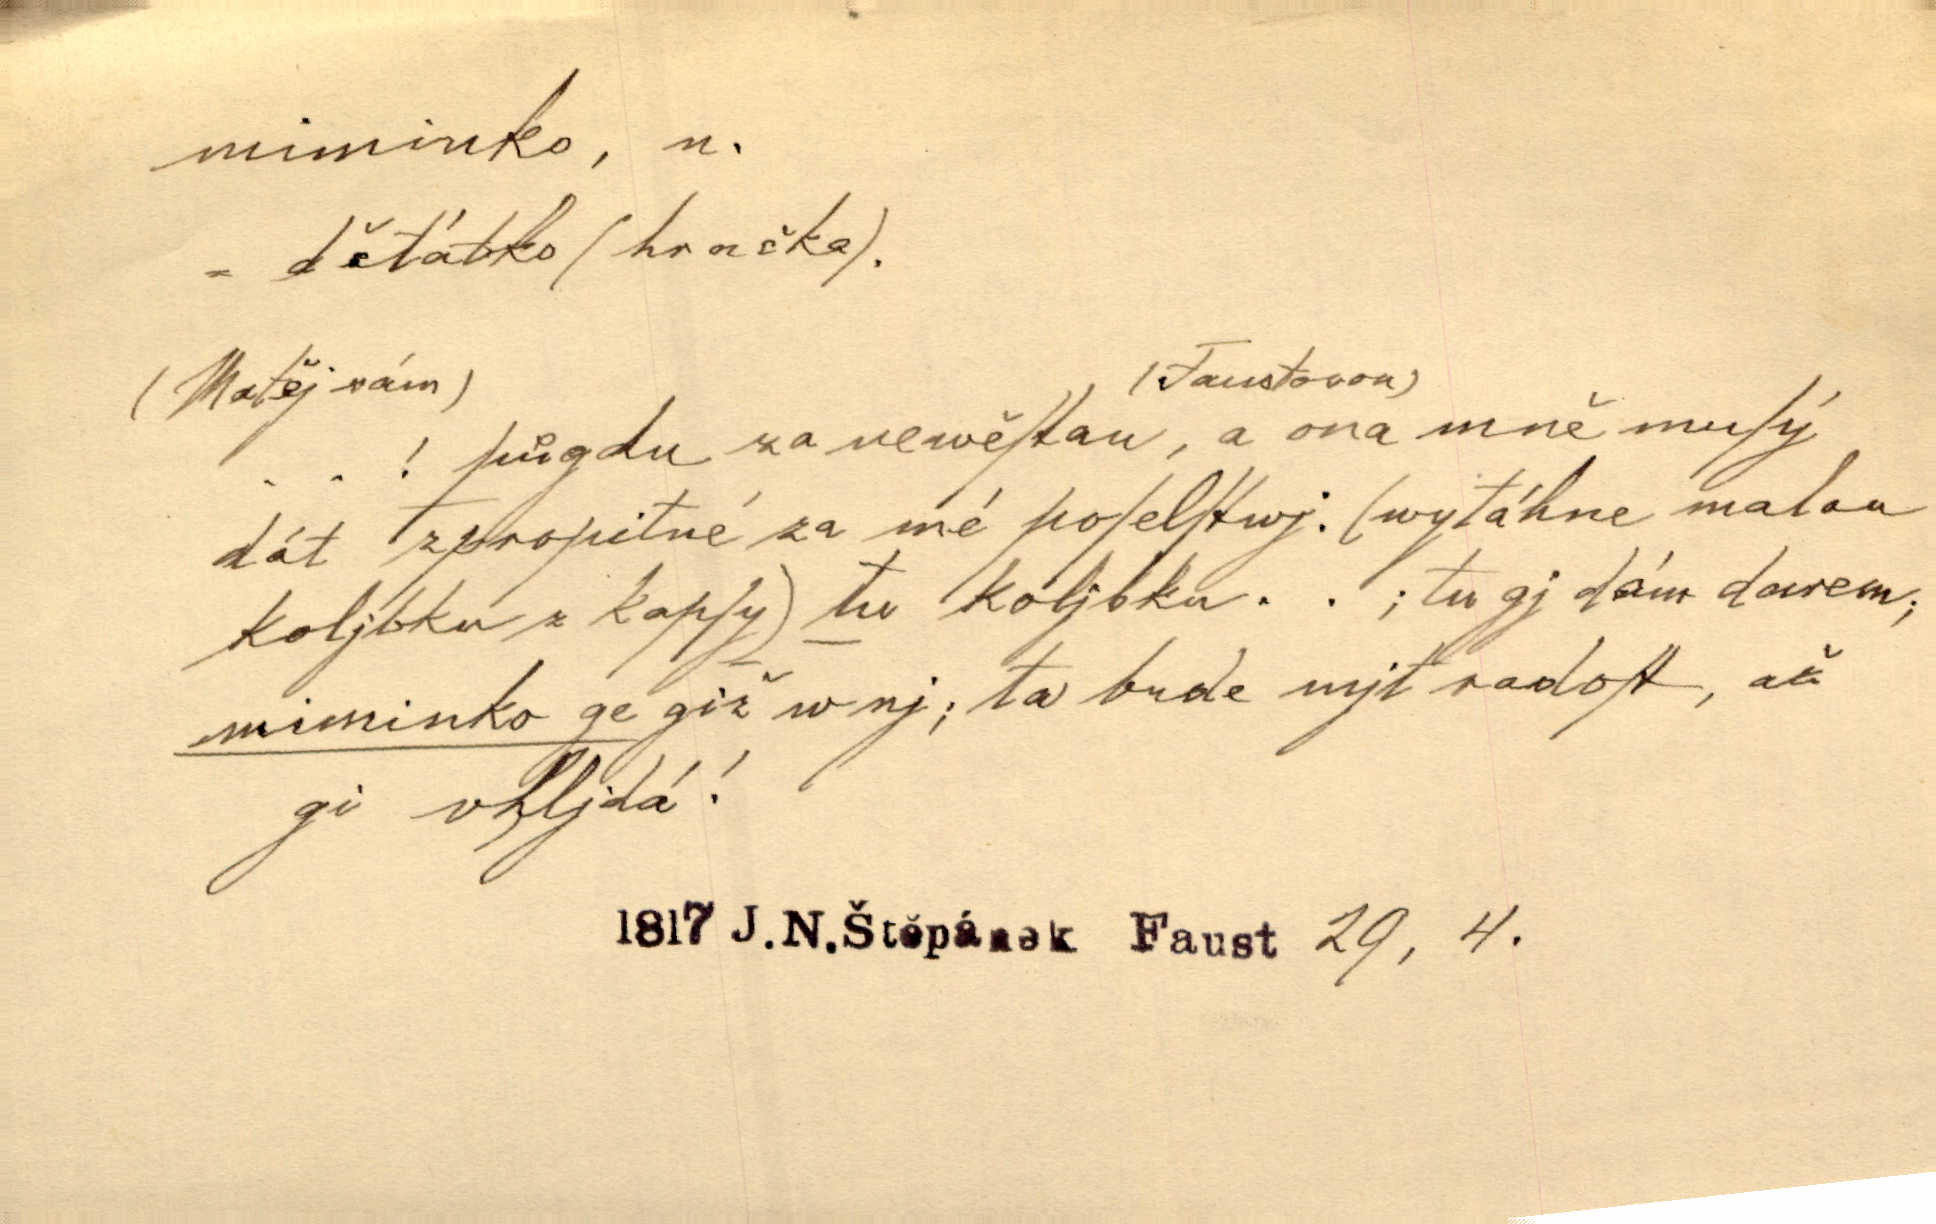 miminko, n.
= děťátko (hračka).
(Matěj sám) (Faustovou)
. . ! půgdu za newěſtau, a ona mně muſý
dát zpropitné za mé poſelſtwj. (wytáhne malou
koljbku z kapſy) tu koljbku . . ; tu gj dám darem;
miminko ge giž w nj; ta bude mjt radoſt, až
gi vhljdá!
1817 J.N.Štěpánek Faust 29, 4.